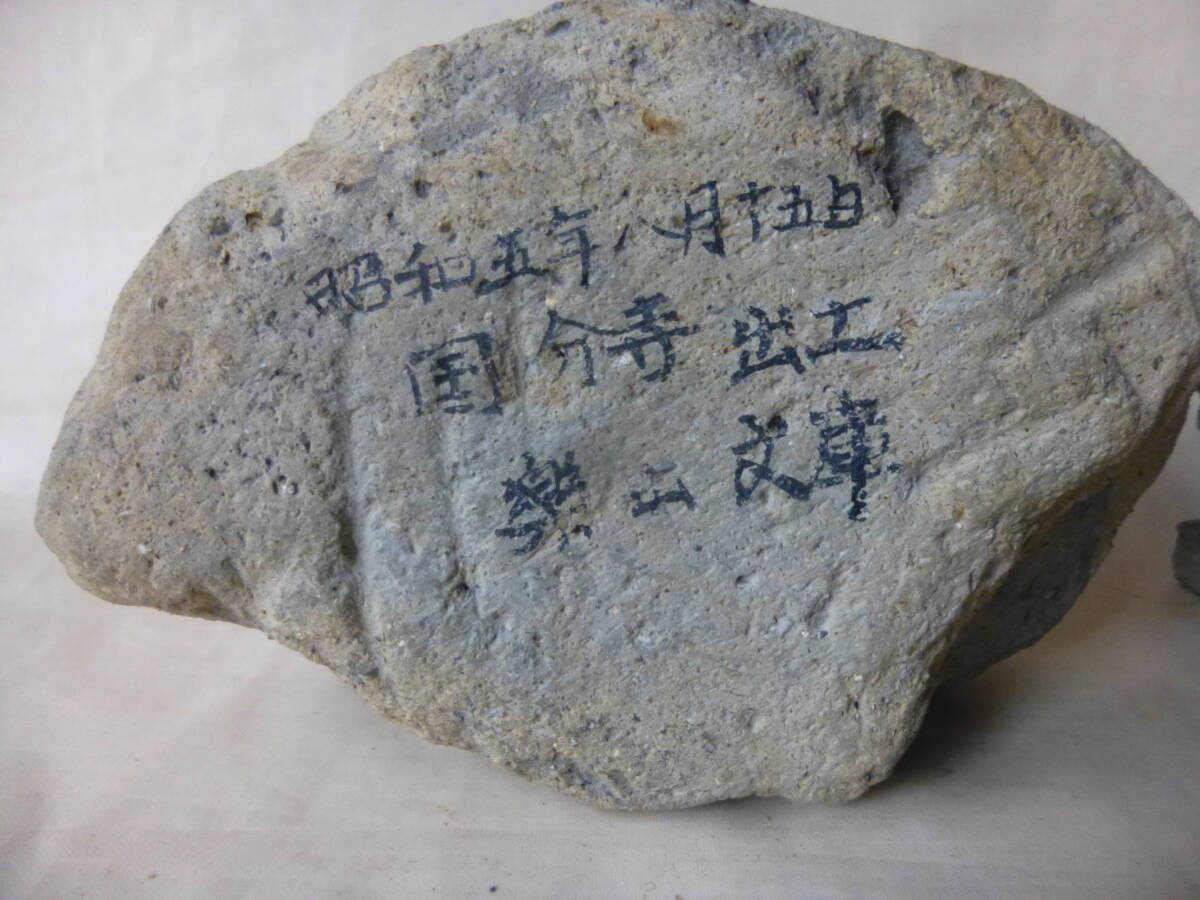 昭和五年八月十五日
国分寺出土
樂山文庫